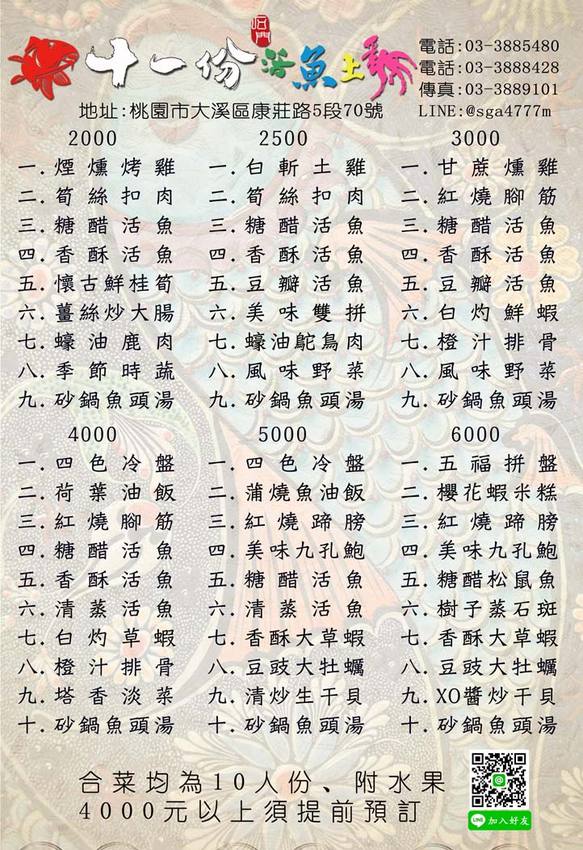 石門
十一份 活魚土雞
電話:03-3885480
電話:03-3888428
傳真:03-3889101
地址:桃園市大溪區康莊路5段70號
LINE:@sga4777m
2000
一.煙燻烤雞
二.筍絲扣肉
三.糖醋活魚
四.香酥活魚
五.懷古鮮桂筍
六.薑絲炒大腸
七.蠔油鹿肉
八.季節時蔬
九.砂鍋魚頭湯
2500
一.白斬土雞
二.筍絲扣肉
三.糖醋活魚
四.香酥活魚
五.豆瓣活魚
六.美味雙拼
七.蠔油鴕鳥肉
八.風味野菜
九.砂鍋魚頭湯
3000
一.甘蔗燻雞
二.紅燒腳筋
三.糖醋活魚
四.香酥活魚
五.豆瓣活魚
六.白灼鮮蝦
七.橙汁排骨
八.風味野菜
九.砂鍋魚頭湯
4000
一.四色冷盤
二.荷葉油飯
三.紅燒腳筋
四.糖醋活魚
五.香酥活魚
六.清蒸活魚
七.白灼草蝦
八.橙汁排骨
九.塔香淡菜
十.砂鍋魚頭湯
5000
一.四色冷盤
二.蒲燒魚油飯
三.紅燒蹄膀
四.美味九孔鮑
五.糖醋活魚
六.清蒸活魚
七.香酥大草蝦
八.豆豉大牡蠣
九.清炒生干貝
十.砂鍋魚頭湯
6000
一.五福拼盤
二.櫻花蝦米糕
三.紅燒蹄膀
四.美味九孔鮑
五.糖醋松鼠魚
六.樹子蒸石斑
七.香酥大草蝦
八.豆豉大牡蠣
九.XO醬炒干貝
十.砂鍋魚頭湯
合菜均為10人份、附水果
4000元以上須提前預訂
LINE 加入好友